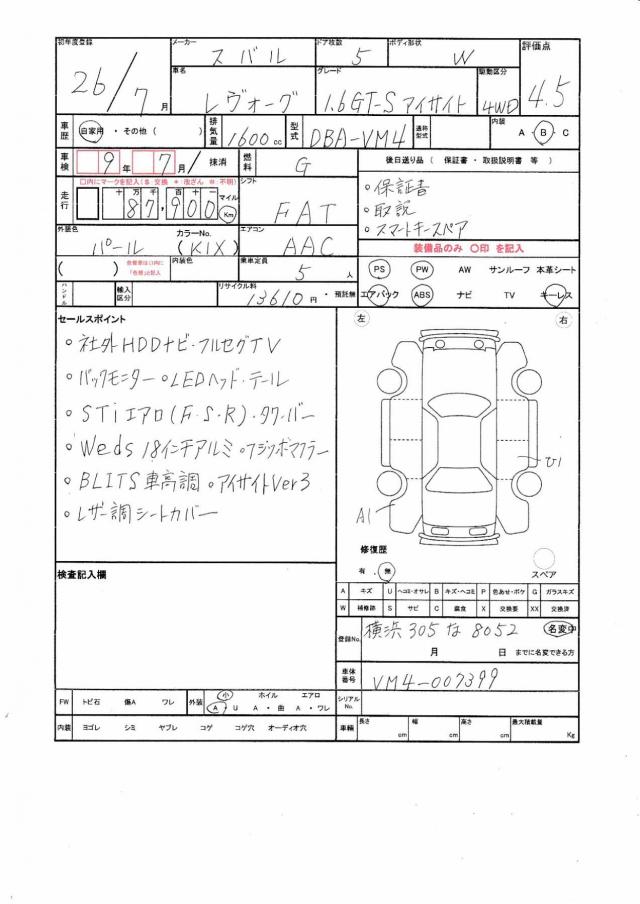 初年度登録 メーカー スバル ドア枚数 5 ボディ形状 W 評価点
26/7月 車名 レヴォーグ グレード 1.6GT-S アイサイト 駆動区分 4WD 4.5
車歴 自家用・その他( ) 排気量 1600cc 型式 DBA-VM4 通称型式 内装 A・B・C
車検 9年 7月/ 抹消 燃料 G 後日送り品 ( 保証書 ・ 取扱説明書 等 )
走行 □内にマークを記入($ 交換 * 改ざん # 不明) シフト
十万 千 百 十 一 87,900 マイル Km FAT
・保証書
・取説
・スマートキースペア
外装色 パール カラーNo. (K1X) エアコン AAC
装備品のみ ○印 を記入
( ) 色替車は( )内に「色替」と記入 内装色 乗車定員 5人
PS PW AW サンルーフ 本革シート
ハンドル 輸入区分 リサイクル料 13610円 ・ 預託無
エアバック ABS ナビ TV キーレス
セールスポイント
○社外HDDナビ・フルセグTV
○バックモニター ○LEDヘッド・テール
○STiエアロ(F・S・R)・タワーバー
○Weds 18インチアルミ ○フジツボマフラー
○BLITS車高調 ○アイサイトVer3
○レザー調シートカバー
左 右
ひ1
A1
修復歴
有 . 無
スペア
検査記入欄
A キズ U ヘコミ・オサレ B キズ・ヘコミ P 色あせ・ボケ G ガラスキズ
W 補修跡 S サビ C 腐食 X 交換要 XX 交換済
登録No. 横浜 305 な 8052 名変中
月 日 までに名変できる方
車体番号 VM4-007399
FW トビ石 傷A ワレ 外装 小 ホイル エアロ
A ・ U A ・ 曲 A ・ ワレ
シリアルNo.
内装 ヨゴレ シミ ヤブレ コゲ コゲ穴 オーディオ穴
車輛 長さ cm 幅 cm 高さ cm 最大積載量 Kg